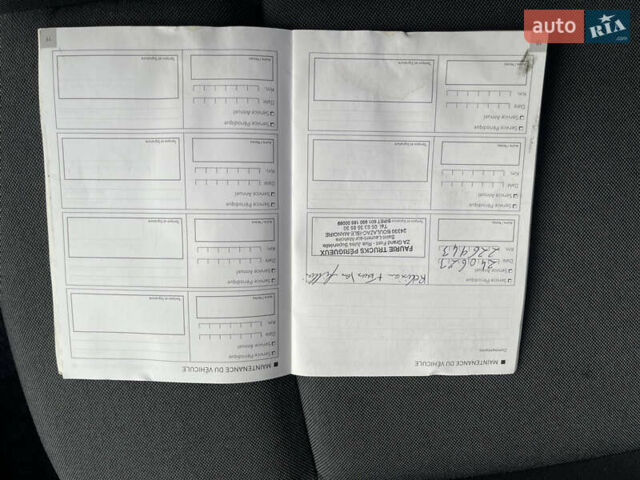 auto RIA.com
MAINTENANCE DU VÉHICULE
Commentaires
Service Périodique
Service Annuel
Date 24 06 23
Km. 226943
Autre / Notes
Tampon et Signature
FAURIE TRUCKS PERIGUEUX
ZA Grand Font - Rue Jules Supervielle
Saint-Laurent-sur-Manoire
24330 BOULAZAC-ISLE-MANOIRE
Tél. 05 53 35 85 30
Service Périodique
Service Annuel
Date
Km.
Autre / Notes
Tampon et Signature
Service Périodique
Service Annuel
Date
Km.
Autre / Notes
Tampon et Signature
MAINTENANCE DU VÉHICULE
Service Périodique
Service Annuel
Date
Km.
Autre / Notes
Tampon et Signature
Service Périodique
Service Annuel
Date
Km.
Autre / Notes
Tampon et Signature
Service Périodique
Service Annuel
Date
Km.
Autre / Notes
Tampon et Signature
Service Périodique
Service Annuel
Date
Km.
Autre / Notes
Tampon et Signature